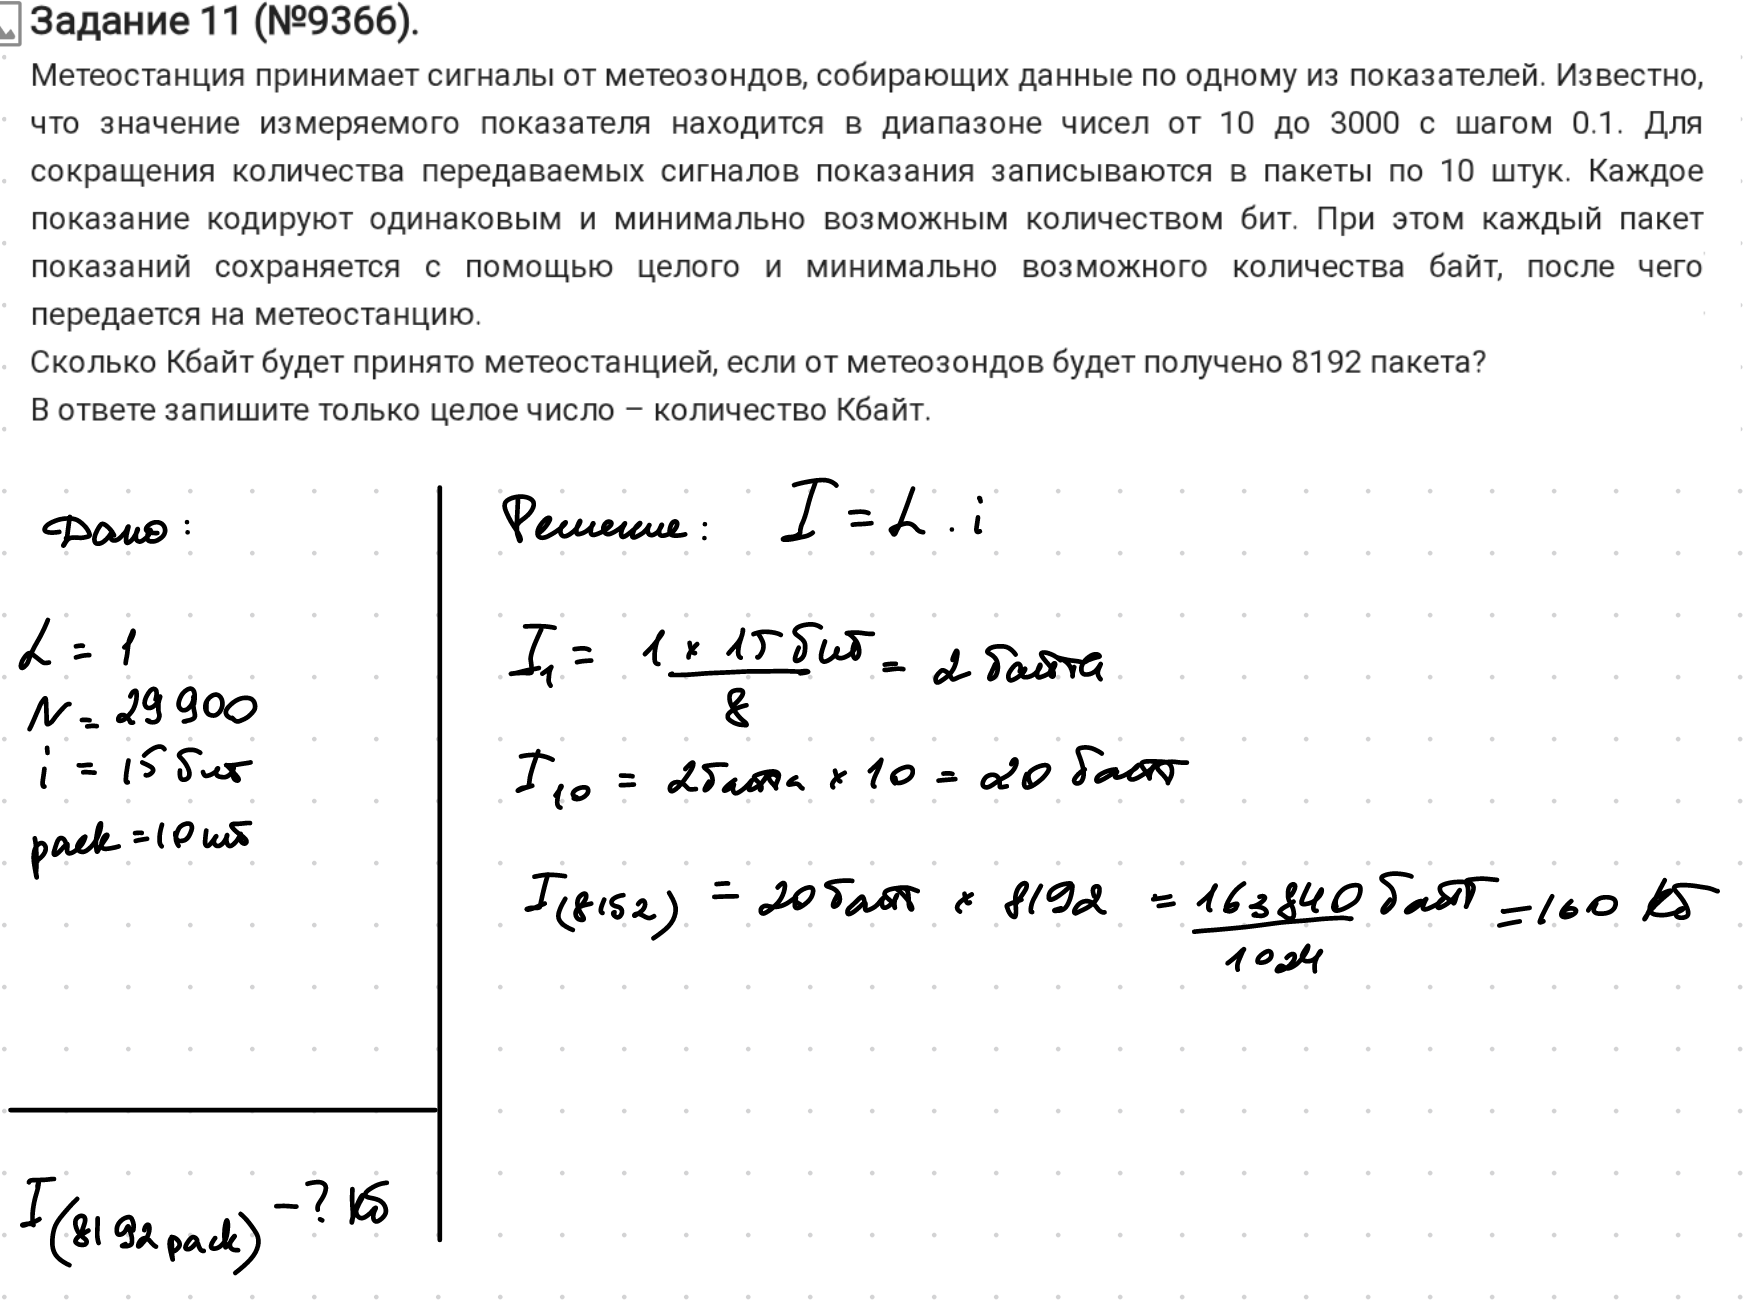 Задание 11 (№9366).
Метеостанция принимает сигналы от метеозондов, собирающих данные по одному из показателей. Известно,
что значение измеряемого показателя находится в диапазоне чисел от 10 до 3000 с шагом 0.1. Для
сокращения количества передаваемых сигналов показания записываются в пакеты по 10 штук. Каждое
показание кодируют одинаковым и минимально возможным количеством бит. При этом каждый пакет
показаний сохраняется с помощью целого и минимально возможного количества байт, после чего
передается на метеостанцию.
Сколько Кбайт будет принято метеостанцией, если от метеозондов будет получено 8192 пакета?
В ответе запишите только целое число – количество Кбайт.
Дано:
L = 1
N = 29 900
i = 15 бит
pack = 10 шт
I (8192 pack) - ? Кб
Решение: I = L · i
I1 = 1 × 15 бит / 8 = 2 байта
I10 = 2 байта × 10 = 20 байт
I(8152) = 20 байт × 8192 = 163840 байт / 1024 = 160 Кб